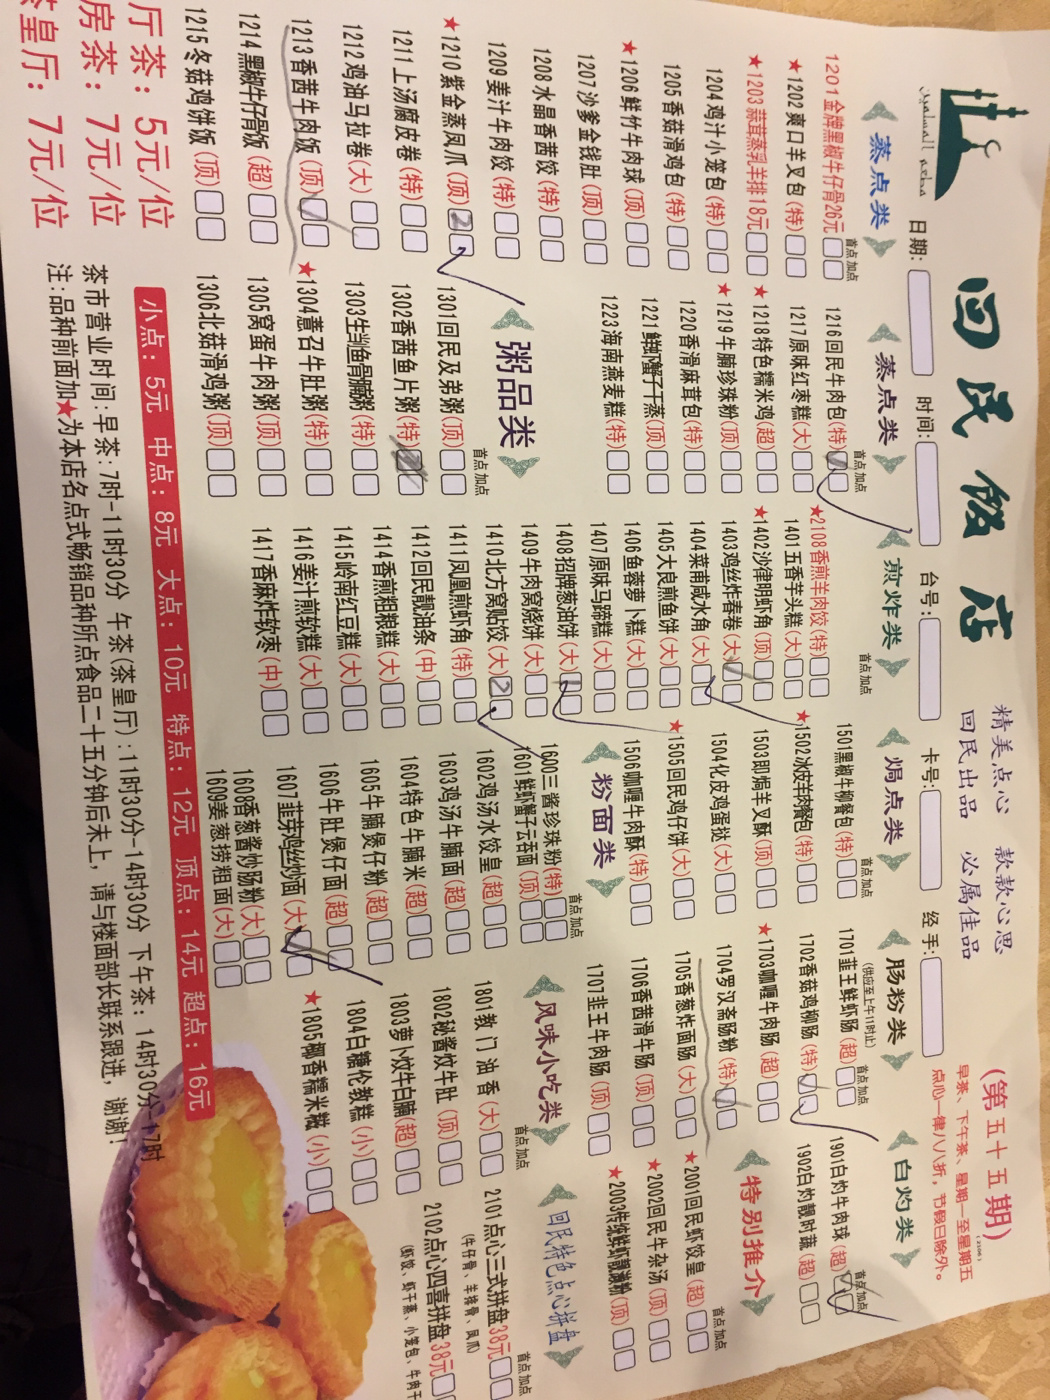 回民饭店
精美点心 款款心思
回民出品 必属佳品
(第五十五期)
早茶、下午茶、星期一至星期五
点心一律八八折，节假日除外。
日期: 时间: 台号: 卡号: 经手:
蒸点类
首点 加点
1201金牌黑椒牛仔骨26元
★1202爽口羊叉包(特)
★1203蒜茸蒸乳羊排18元
1204鸡汁小笼包(特)
1205香菇滑鸡包(特)
★1206鲜竹牛肉球(顶)
1207沙爹金钱肚(顶)
1208水晶香茜饺(特)
1209姜汁牛肉饺(特)
★1210紫金蒸凤爪(顶) 2
1211上汤腐皮卷(特)
1212鸡油马拉卷(大)
1213香茜牛肉饭(顶)
1214黑椒牛仔骨饭(超)
1215冬菇鸡饼饭(顶)
蒸点类
首点 加点
1216回民牛肉包(特)
1217原味红枣糕(大)
★1218特色糯米鸡(超)
★1219牛腩珍珠粉(顶)
1220香滑麻茸包(特)
1221鲜虾蟹子干蒸(顶)
1223海南燕麦糕(特)
粥品类
首点 加点
1301回民及弟粥(顶)
1302香茜鱼片粥(特)
1303生滚鱼骨腩粥(特)
★1304薏召牛肚粥(特)
1305窝蛋牛肉粥(顶)
1306北菇滑鸡粥(顶)
煎炸类
首点 加点
★2108香煎羊肉饺(特)
1401五香芋头糕(大)
★1402沙律明虾角(顶)
1403鸡丝炸春卷(大)
1404菜甫咸水角(大)
1405大良煎鱼饼(大)
1406鱼蓉萝卜糕(大)
1407原味马蹄糕(大)
★1408招牌葱油饼(大) 1
1409牛肉窝烧饼(大)
1410北方窝贴饺(大) 2
1411凤凰煎虾角(特)
1412回民靓油条(中)
1414香煎粗粮糕(大)
1415岭南红豆糕(大)
1416姜汁煎软糕(大)
1417香麻炸软枣(中)
焗点类
首点 加点
1501黑椒牛柳餐包(特)
★1502冰皮羊肉餐包(特)
1503即焗羊叉酥(顶)
1504化皮鸡蛋挞(大)
★1505回民鸡仔饼(大)
1506咖喱牛肉酥(特)
粉面类
首点 加点
1600三酱珍珠粉(特)
1601鲜虾蟹子云吞面(顶)
1602鸡汤水饺皇(超)
1603鸡汤牛腩面(超)
1604特色牛腩米(超)
1605牛腩煲仔粉(超)
1606牛肚煲仔面(超)
1607韭芽鸡丝炒面(大)
1608香葱酱炒肠粉(大)
1609姜葱捞粗面(大)
肠粉类
首点 加点
1701韭王鲜虾肠(超)
(供应至上午11时止)
1702香菇鸡柳肠(特)
★1703咖喱牛肉肠(超)
1704罗汉斋肠粉(特)
1705香葱炸面肠(大)
1706香茜滑牛肠(顶)
1707韭王牛肉肠(顶)
风味小吃类
首点 加点
1801教门油香(大)
1802秘酱炆牛肚(顶)
1803萝卜炆牛白腩(超)
1804白糖伦教糕(小)
★1805椰香糯米糍(小)
白灼类
首点 加点
1901白灼牛肉球(超)
1902白灼靓时蔬(超)
特别推介
首点 加点
★2001回民虾饺皇(超)
★2002回民牛杂汤(顶)
★2003传统鲜虾靓濑粉(顶)
回民特色点心拼盘
首点 加点
2101点心三式拼盘38元
(牛仔骨、羊排骨、凤爪)
2102点心四喜拼盘38元
(虾饺、虾干蒸、小笼包、牛肉干
小点：5元 中点：8元 大点：10元 特点：12元 顶点：14元 超点：16元
厅茶：5元/位
房茶：7元/位
茶皇厅：7元/位
茶市营业时间:早茶:7时-11时30分 午茶(茶皇厅):11时30分-14时30分 下午茶：14时30分-17时
注:品种前面加★为本店名点式畅销品种所点食品二十五分钟后未上，请与楼面部长联系跟进，谢谢!